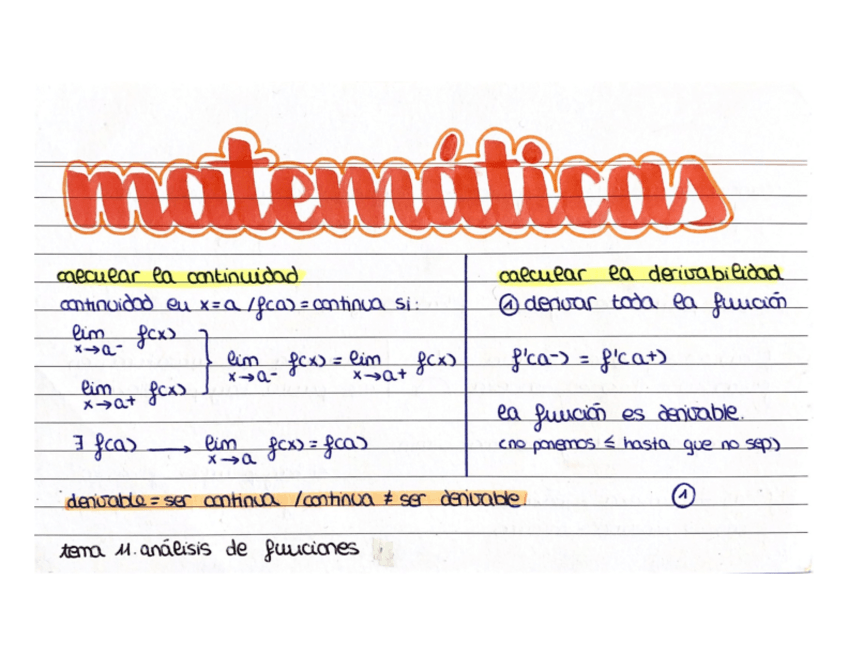 matemáticas
calcular la continuidad
continuidad en x=a /f(a)=continua si:
lim f(x)
x→a-
lim f(x)
x→a+
lim f(x) = lim f(x)
x→a- x→a+
∃ f(a) ⟶ lim f(x) = f(a)
x→a
calcular la derivabilidad
① derivar toda la función
f'(a-) = f'(a+)
la función es derivable.
(no ponemos ≤ hasta que no sep)
derivable = ser continua / continua ≠ ser derivable.
①
tema 11. análisis de funciones